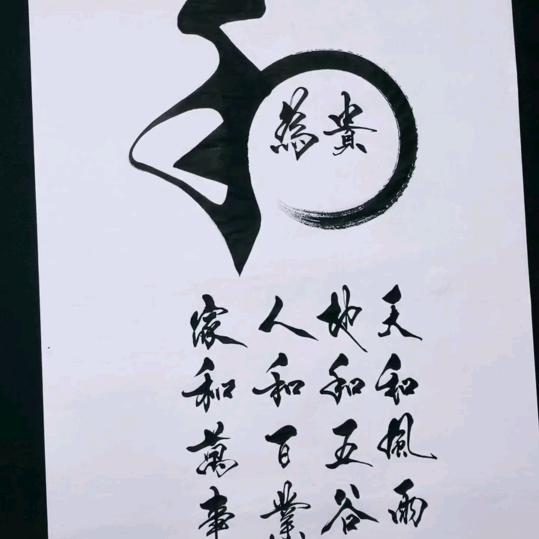 和
為貴
天和風雨
地和五谷
人和百業
家和萬事